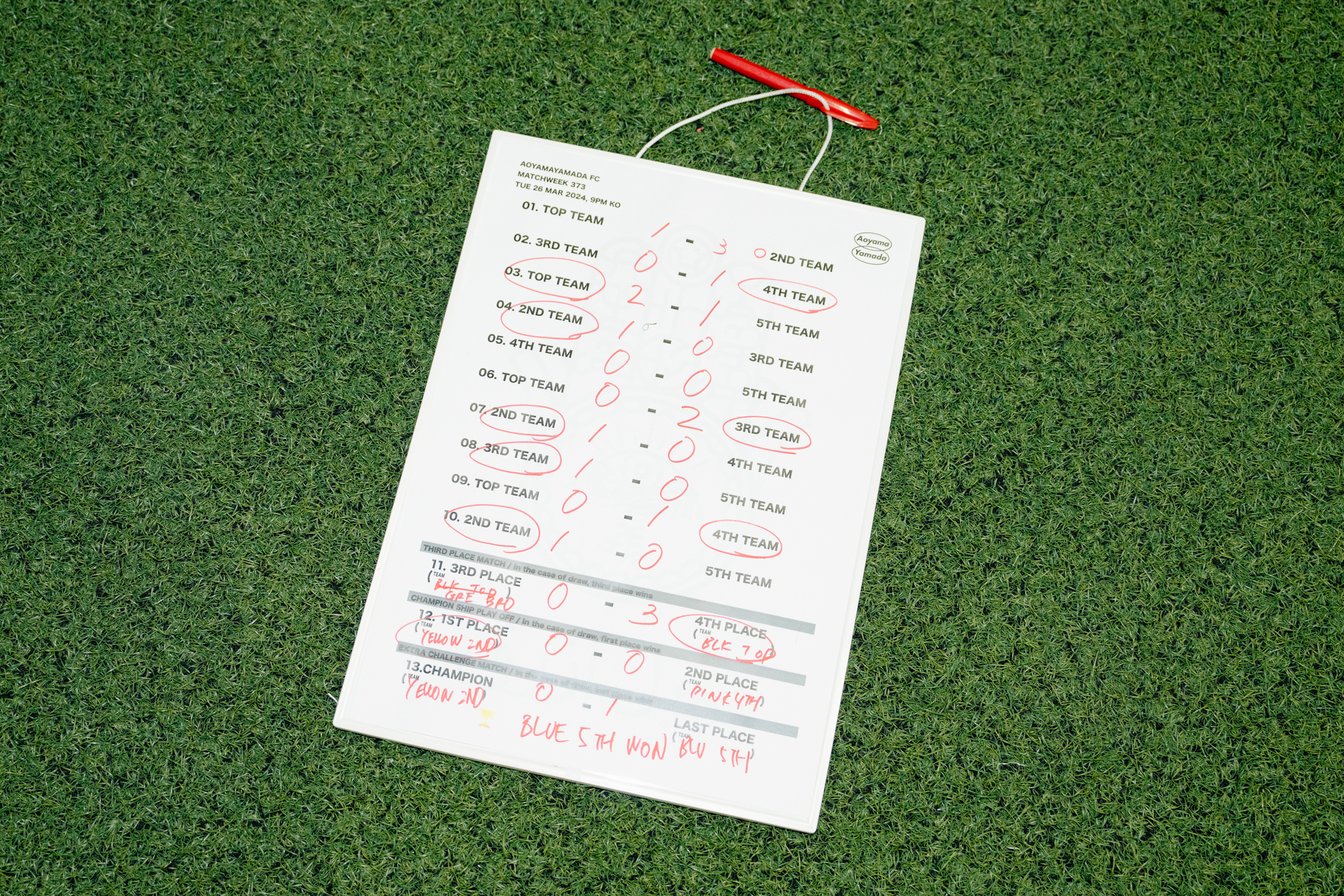 AOYAMAYAMADA FC
MATCHWEEK 373
TUE 26 MAR 2024, 9PM KO
Aoyama
Yamada
01. TOP TEAM 1 - 3 2ND TEAM
02. 3RD TEAM 0 - 1 4TH TEAM
03. TOP TEAM 2 - 1 5TH TEAM
04. 2ND TEAM 1 - 0 3RD TEAM
05. 4TH TEAM 0 - 0 5TH TEAM
06. TOP TEAM 0 - 2 3RD TEAM
07. 2ND TEAM 1 - 0 4TH TEAM
08. 3RD TEAM 1 - 0 5TH TEAM
09. TOP TEAM 0 - 1 4TH TEAM
10. 2ND TEAM 1 - 0 5TH TEAM
THIRD PLACE MATCH / In the case of draw, third place wins
11. 3RD PLACE 0 - 3 4TH PLACE
(TEAM BLK TOP )
GRE 3RD
(TEAM BLK TOP)
CHAMPION SHIP PLAY OFF / In the case of draw, first place wins
12. 1ST PLACE 0 - 0 2ND PLACE
(TEAM YELLOW 2ND)
(TEAM PINK 4TH)
EXTRA CHALLENGE MATCH / In the case of draw, last place wins
13.CHAMPION 0 - 1 LAST PLACE
(TEAM YELLOW 2ND)
(TEAM BLU 5TH)
BLUE 5TH WON